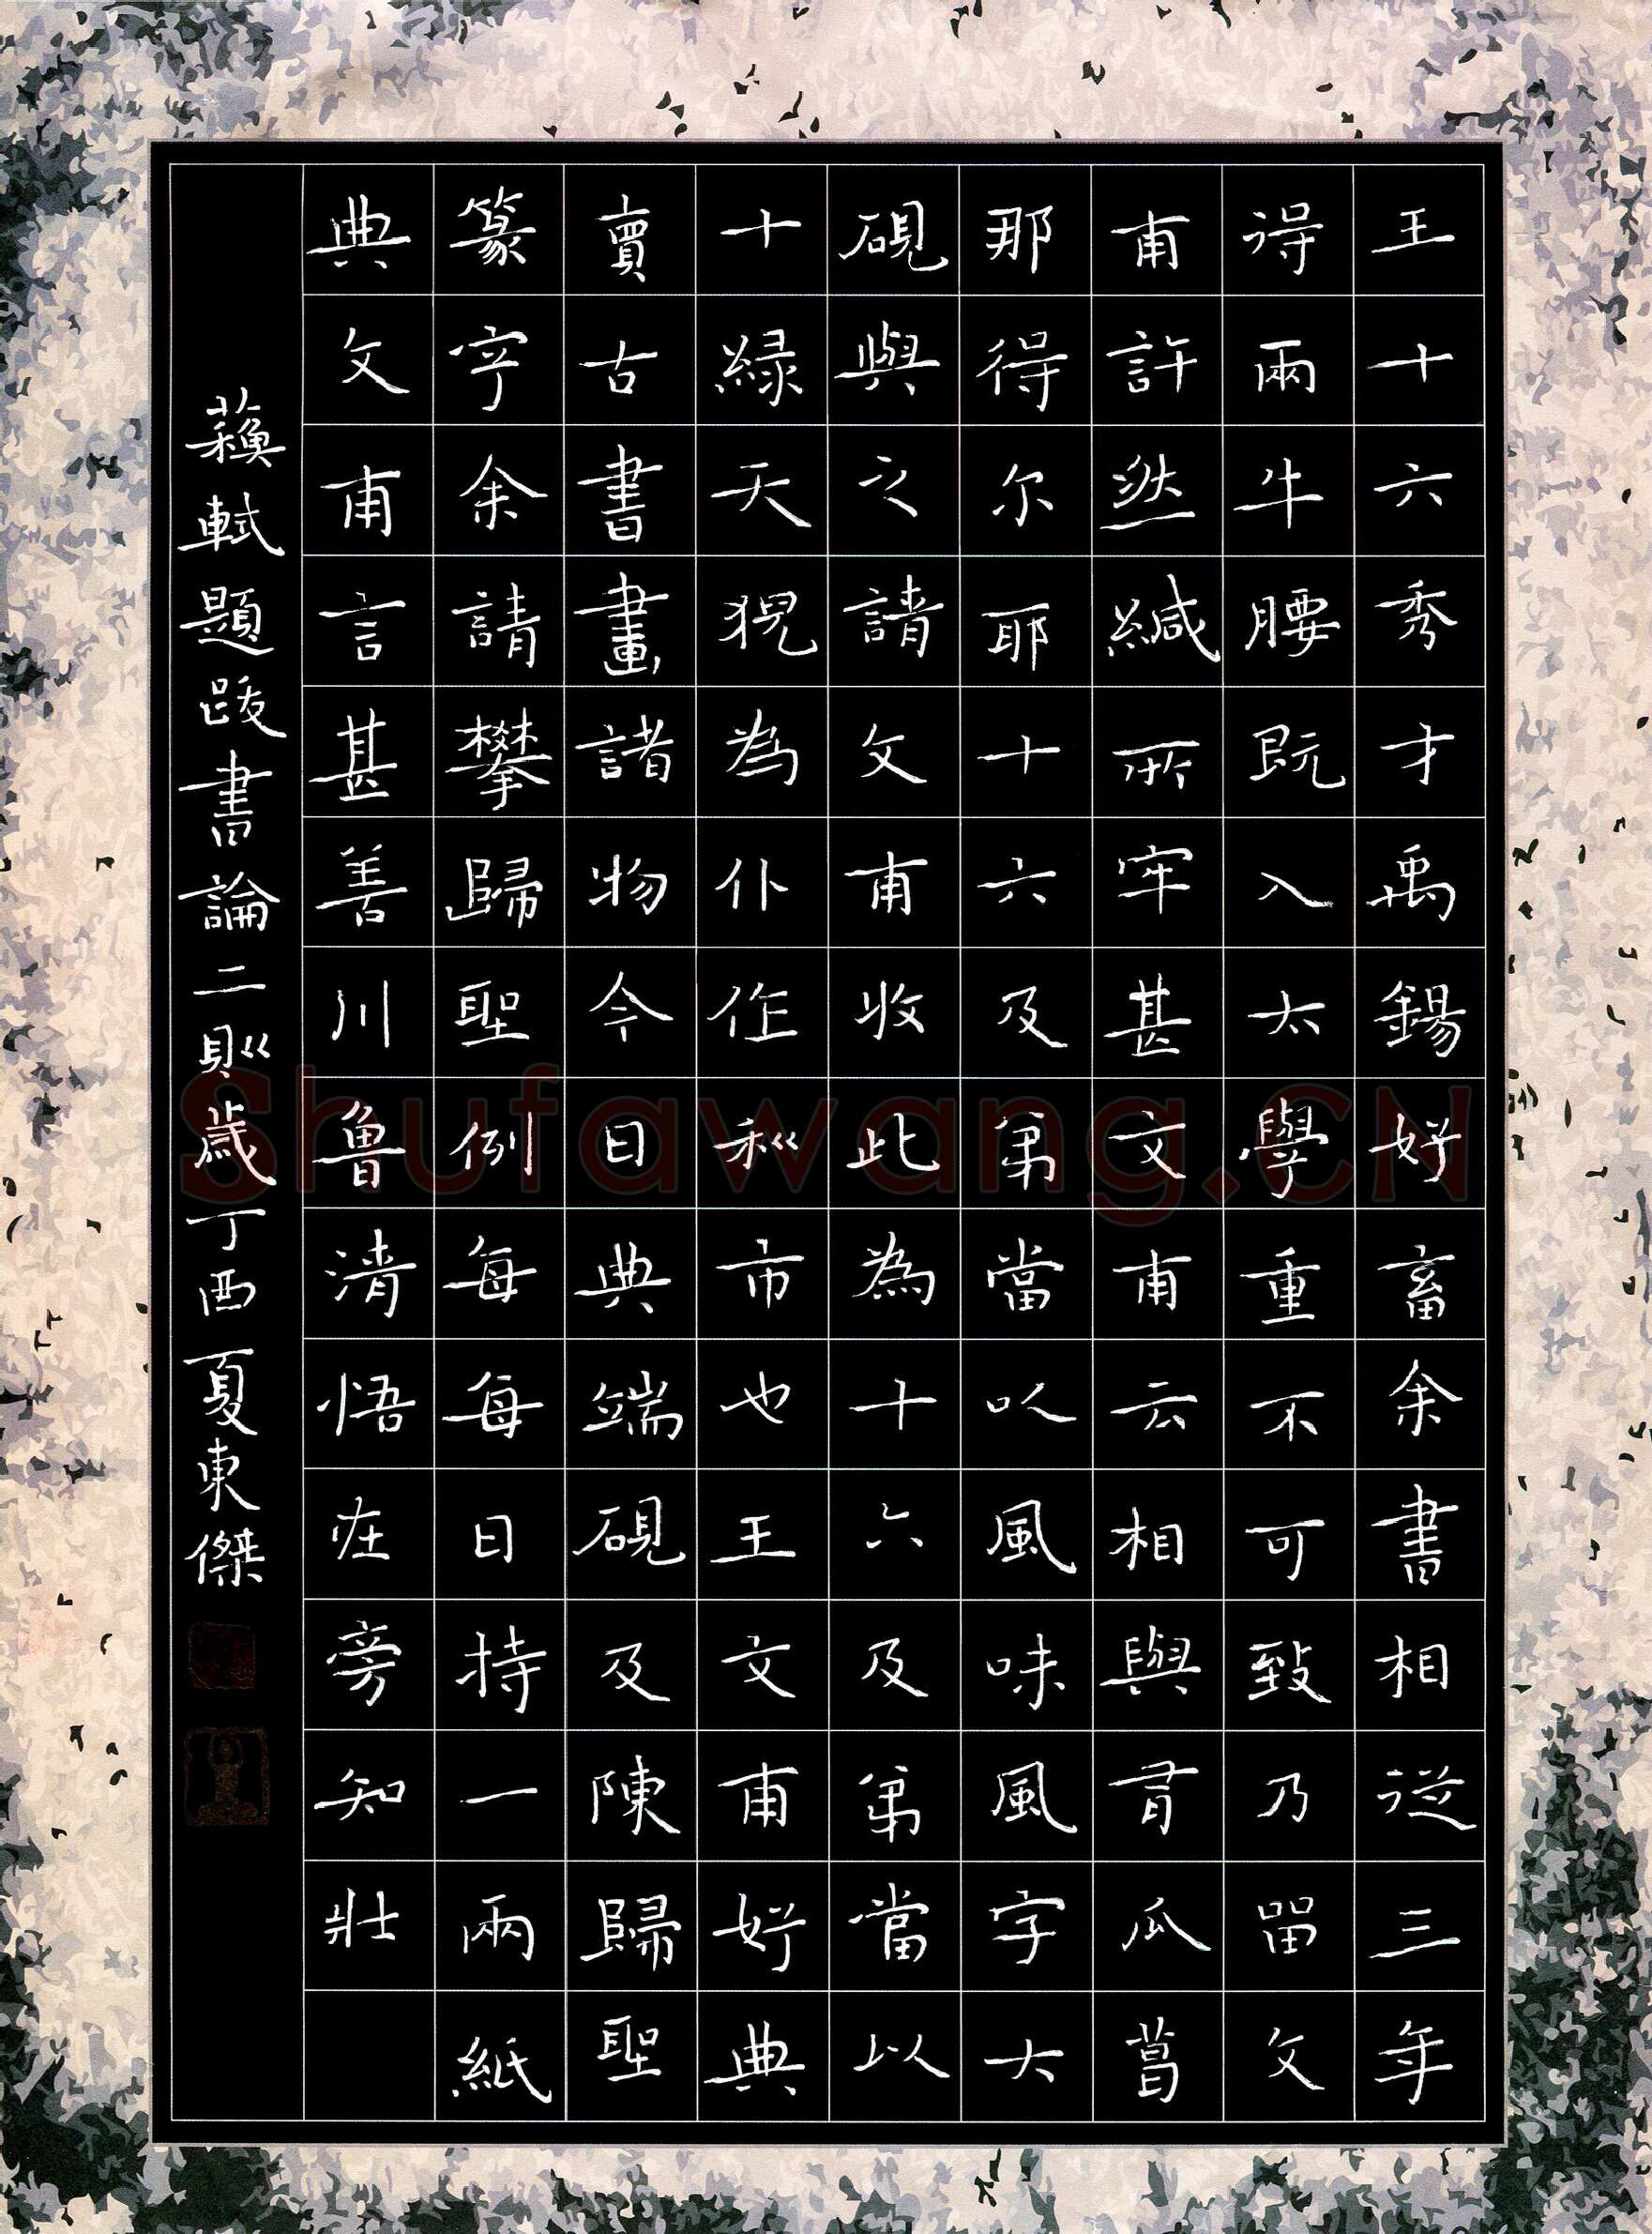 王十六秀才禹錫好畜余書相從三年
得兩牛腰既入太學重不可致乃留文
甫許然緘所牢甚文甫云相與有瓜葛
那得尔耶十六及第當以風味風字大
硯與之請文甫收此為十六及第當以
十綠天猊為仆作秋市也王文甫好典
賣古書畫諸物今日典端硯及陳歸聖
篆字余請攀歸聖例每每日持一兩紙
典文甫言甚善川魯清悟在旁知壯
蘓軾題跋書論二則歲丁酉夏東傑
Shufawang.CN